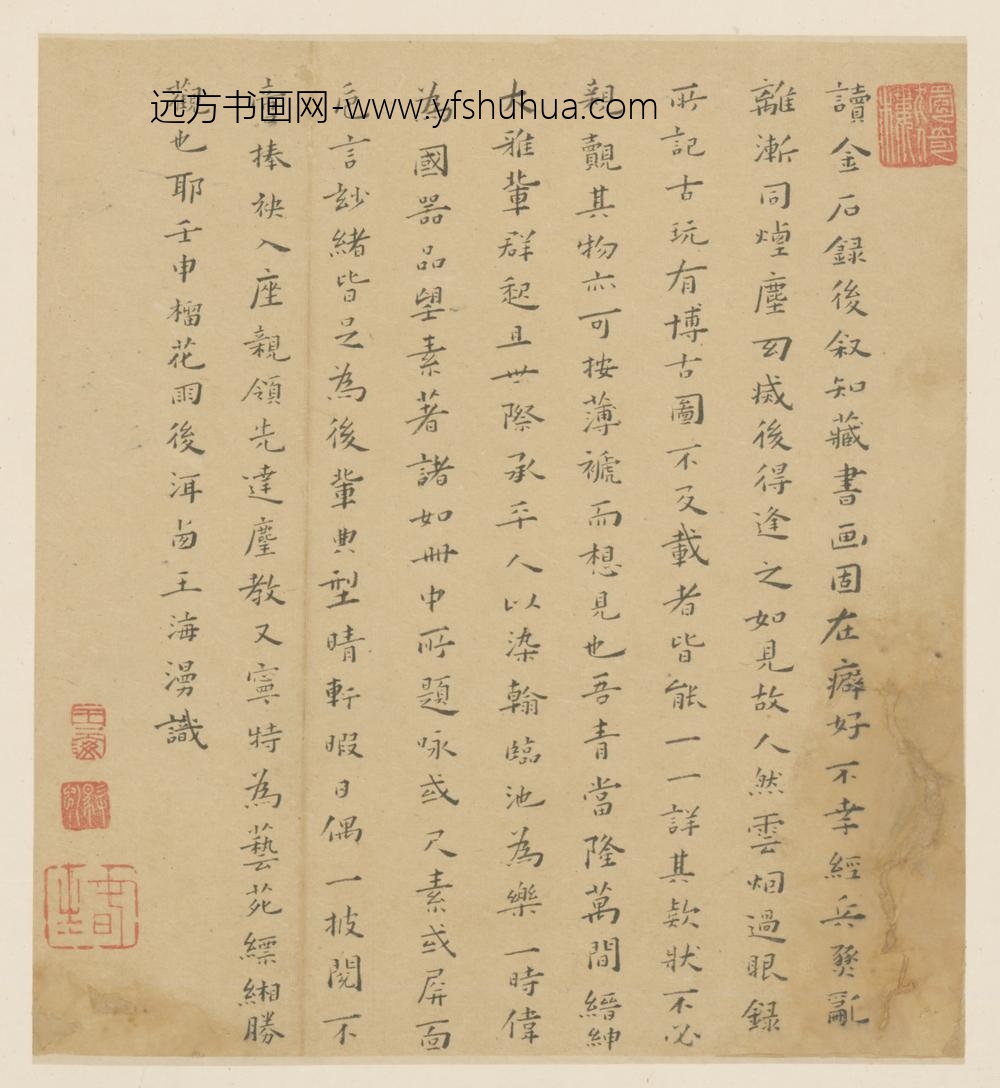 远方书画网-www.yfshuhua.com
讀金石録後叙知藏書画固在癖好不幸經兵燹亂
離漸同煙塵刧烖後得逢之如見故人然雲烟過眼録
所記古玩有博古圖不及載者皆能一一詳其欵狀不必
親覿其物亦可按薄褫而想見也吾青當隆萬間縉紳
大雅軰群起且世際承平人以染翰臨池為樂一時偉
為國器品望素著諸如冊中所題咏或尺素或屏面
卮言玅緒皆足為後軰典型晴軒暇日偶一披閱不
啻捧袂入座親領先達麈教又寧特為藝苑縹緗勝
觀也耶壬申榴花雨後洱王海漫識